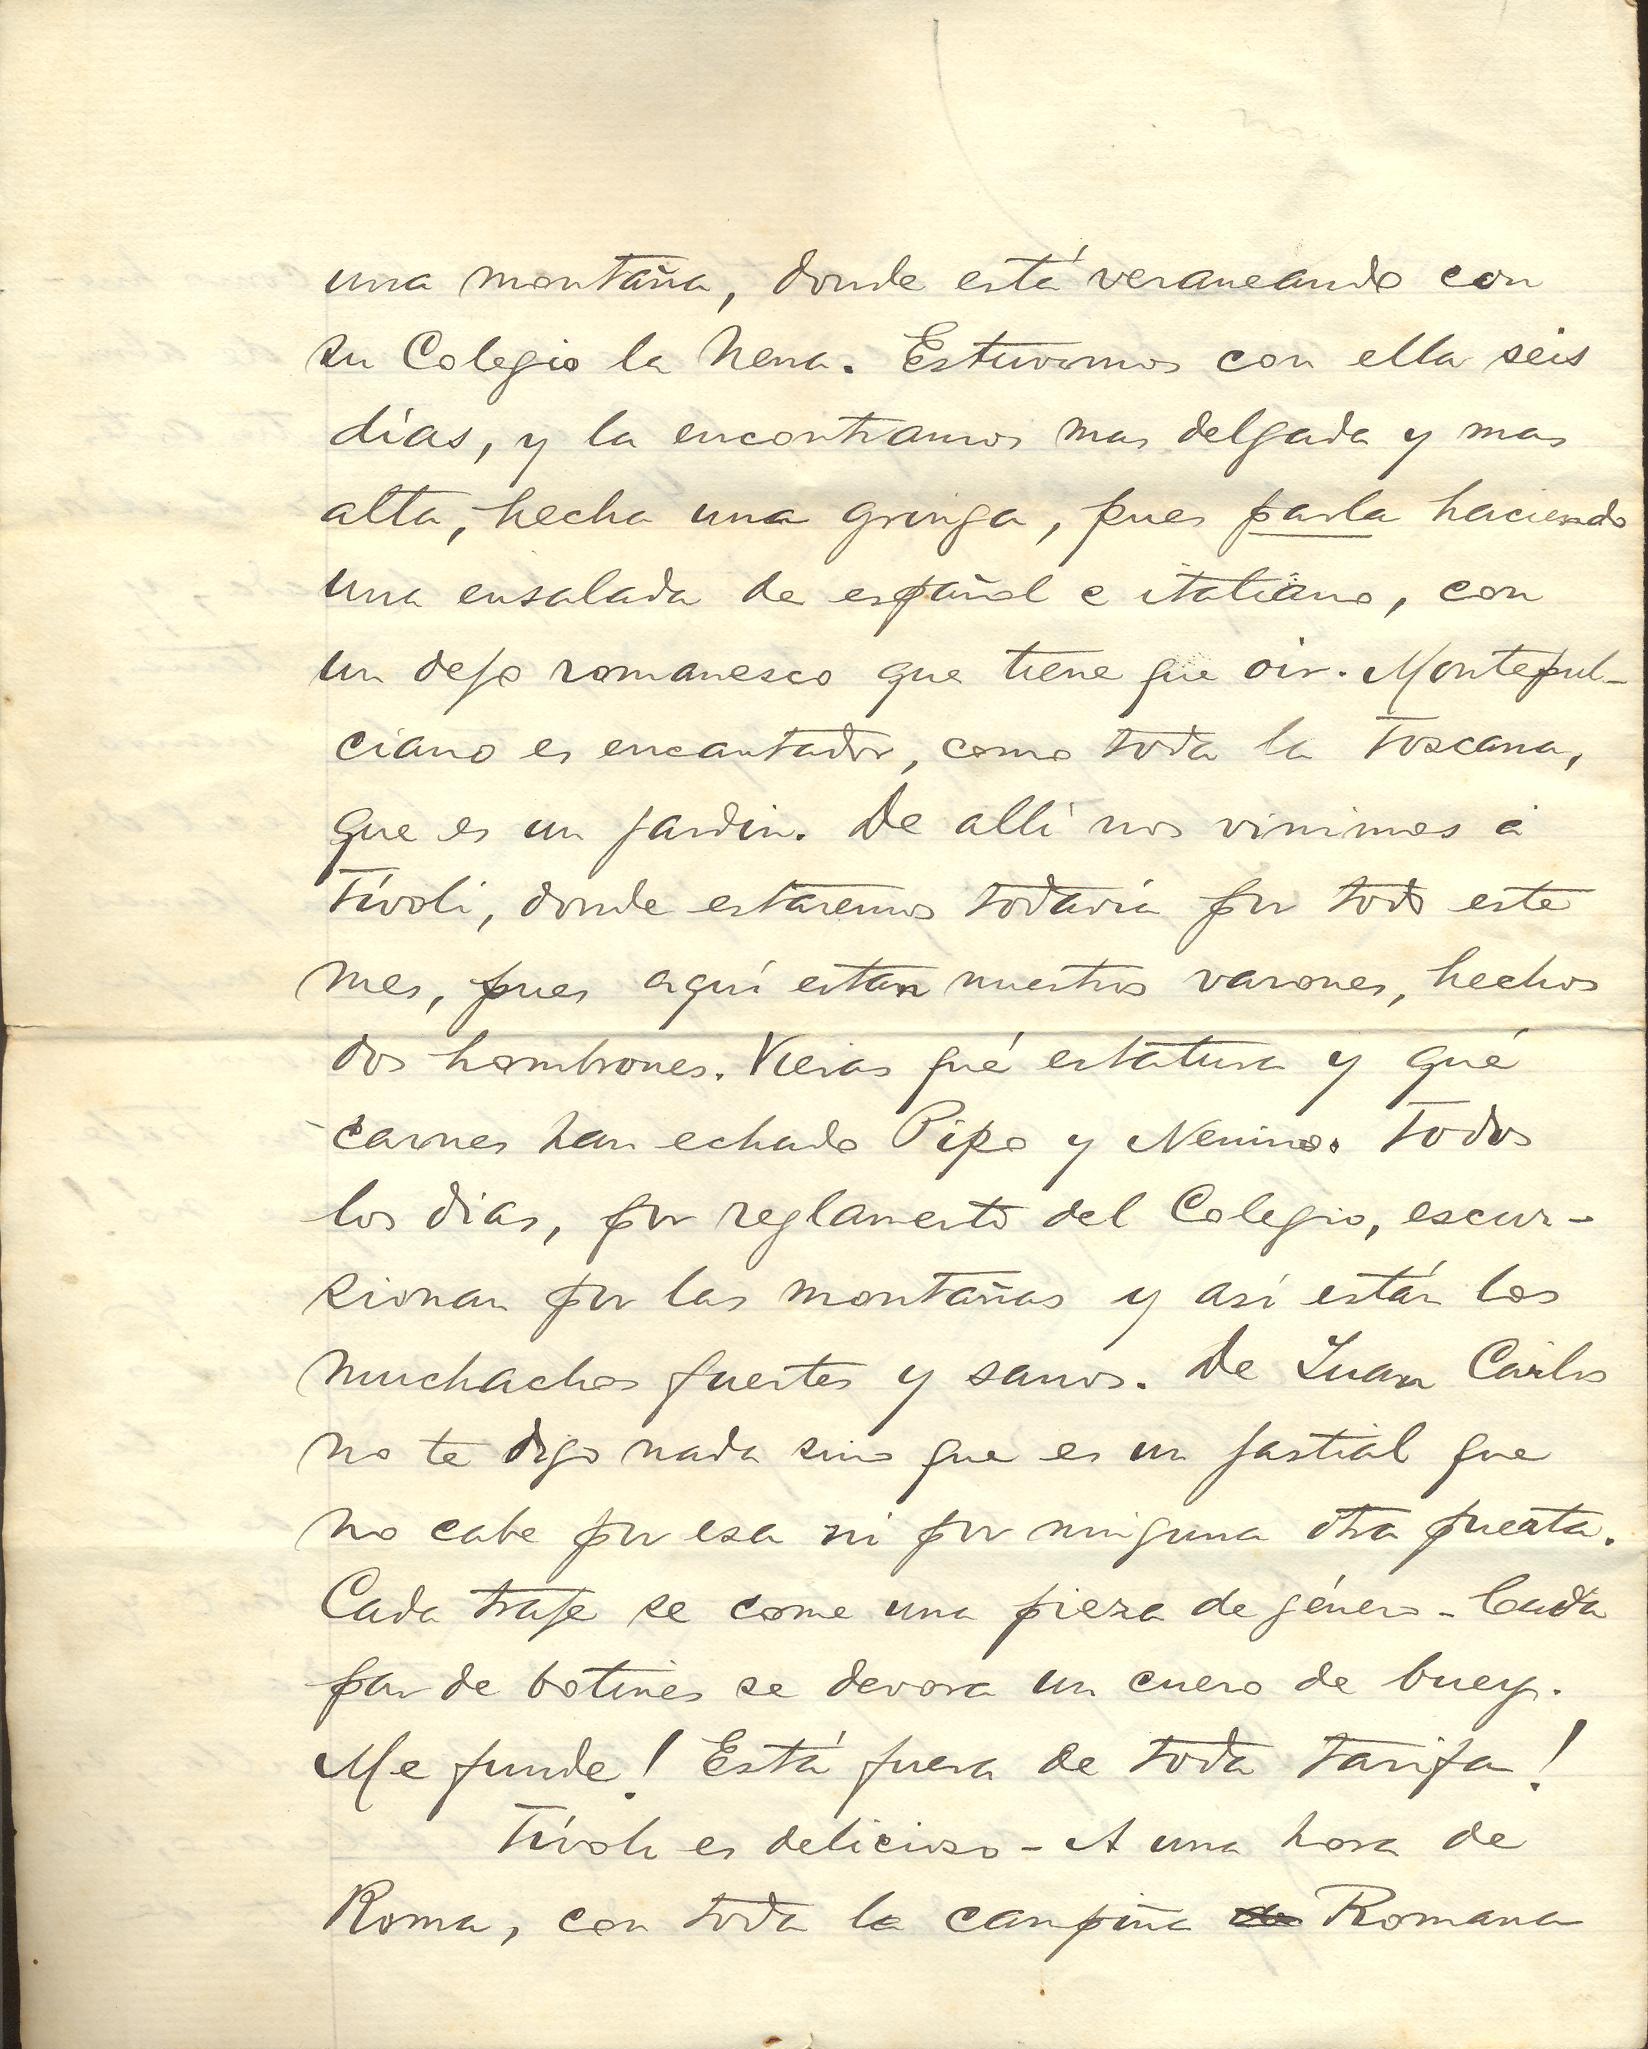 una montaña, donde está veraneando con
su Colegio la Nena. Estuvimos con ella seis
días, y la encontramos mas delgada y mas
alta, hecha una gringa, pues parla haciendo
una ensalada de español e italiano, con
un dejo romanesco que tiene que oir. Montepul-
ciano es encantador, como toda la Toscana,
que es un jardin. De allí nos vinimos á
Tívoli, donde estaremos todavía por todo este
mes, pues aquí estan nuestros varones, hechos
dos hombrones. Vieras qué estatura y qué
carnes han echado Pipo y Nenino. Todos
los dias, por reglamento del Colegio, escur-
sionan por las montañas y así están los
muchachos fuertes y sanos. De Juan Cárlos
no te digo nada sino que es un jastial que
no cabe por esa ni por ninguna otra puerta.
Cada traje se come una pieza de género - Cada
par de botines se devora un cuero de buey.
Me funde! Está fuera de toda tarifa!
Tívoli es delicioso - A una hora de
Roma, con toda la campiña Romana